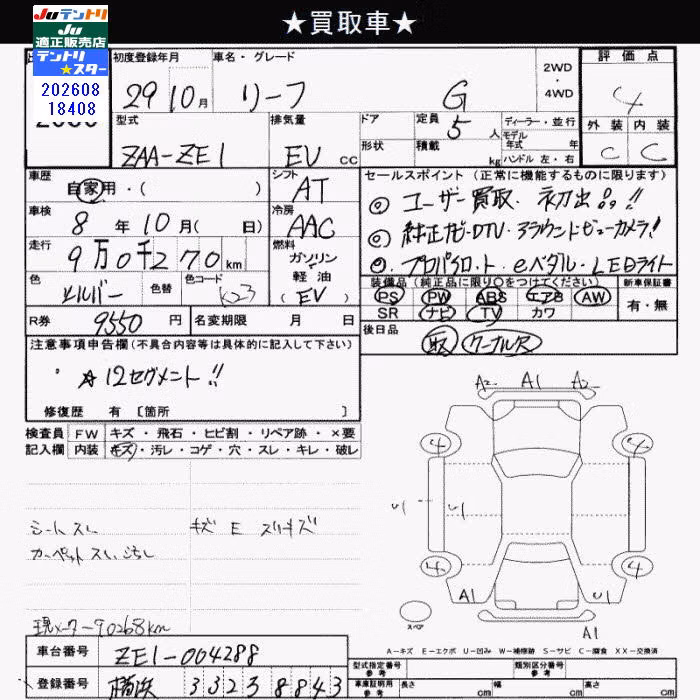 ★買取車★
JUテントリ
JU
適正販売店
テントリ
★スター
202608
18408
初度登録年月
29 10月
車名・グレード
リーフ G
2WD
・
4WD
評価点
4
外装 内装
C C
型式
ZAA-ZE1
排気量
EV cc
ドア
定員
5人
形状
積載
kg
ディーラー・並行
モデル
年式 年
ハンドル 左・右
車歴
自家用・( )
シフト
AT
車検
8年10月( 日)
冷房
AAC
走行
9万0千270km
燃料
ガソリン
軽油
(EV)
色
シルバー
色替
色コード
K23
R券 9550円
名変期限 月 日
セールスポイント(正常に機能するものに限ります)
◎ユーザー買取・初出品!!
◎純正ナビ・DTV・アラウンドビューカメラ!
◎プロパイロット・eペダル・LEDライト
装備品(純正品に限り○をつけてください)
新車保証書
PS PW ABS エアB AW
SR ナビ TV カワ
有・無
後日品
取 ケーブル
注意事項申告欄(不具合内容等は具体的に記入して下さい)
☆12セグメント!!
修復歴 有 [箇所 ]
検査員
記入欄
FW キズ・飛石・ヒビ割・リペア跡・×要
内装 キズ・汚レ・コゲ・穴・スレ・キレ・破レ
シートスレ
カーペットスレ、ヨゴレ
キズ E スリキズ
現メーター90268km
車台番号 ZE1-004288
登録番号 横浜 33238843
A2 A1 A2
4 4
U1 U1
4 4
A1 U1
A1
スペア
A-キズ E-エクボ U-凹み W-補修跡 S-サビ C-腐食 XX-交換済
型式指定番号
参考
類別区分番号
参考
車庫証明用
参考
長さ cm 幅 cm 高さ cm